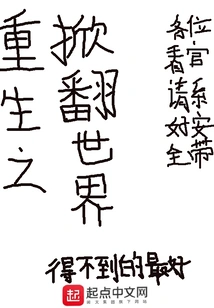 重生之
掀翻世界
各位
看官
请系
好安
全带
得不到的最好
起点中文网
阅文集团旗下网站